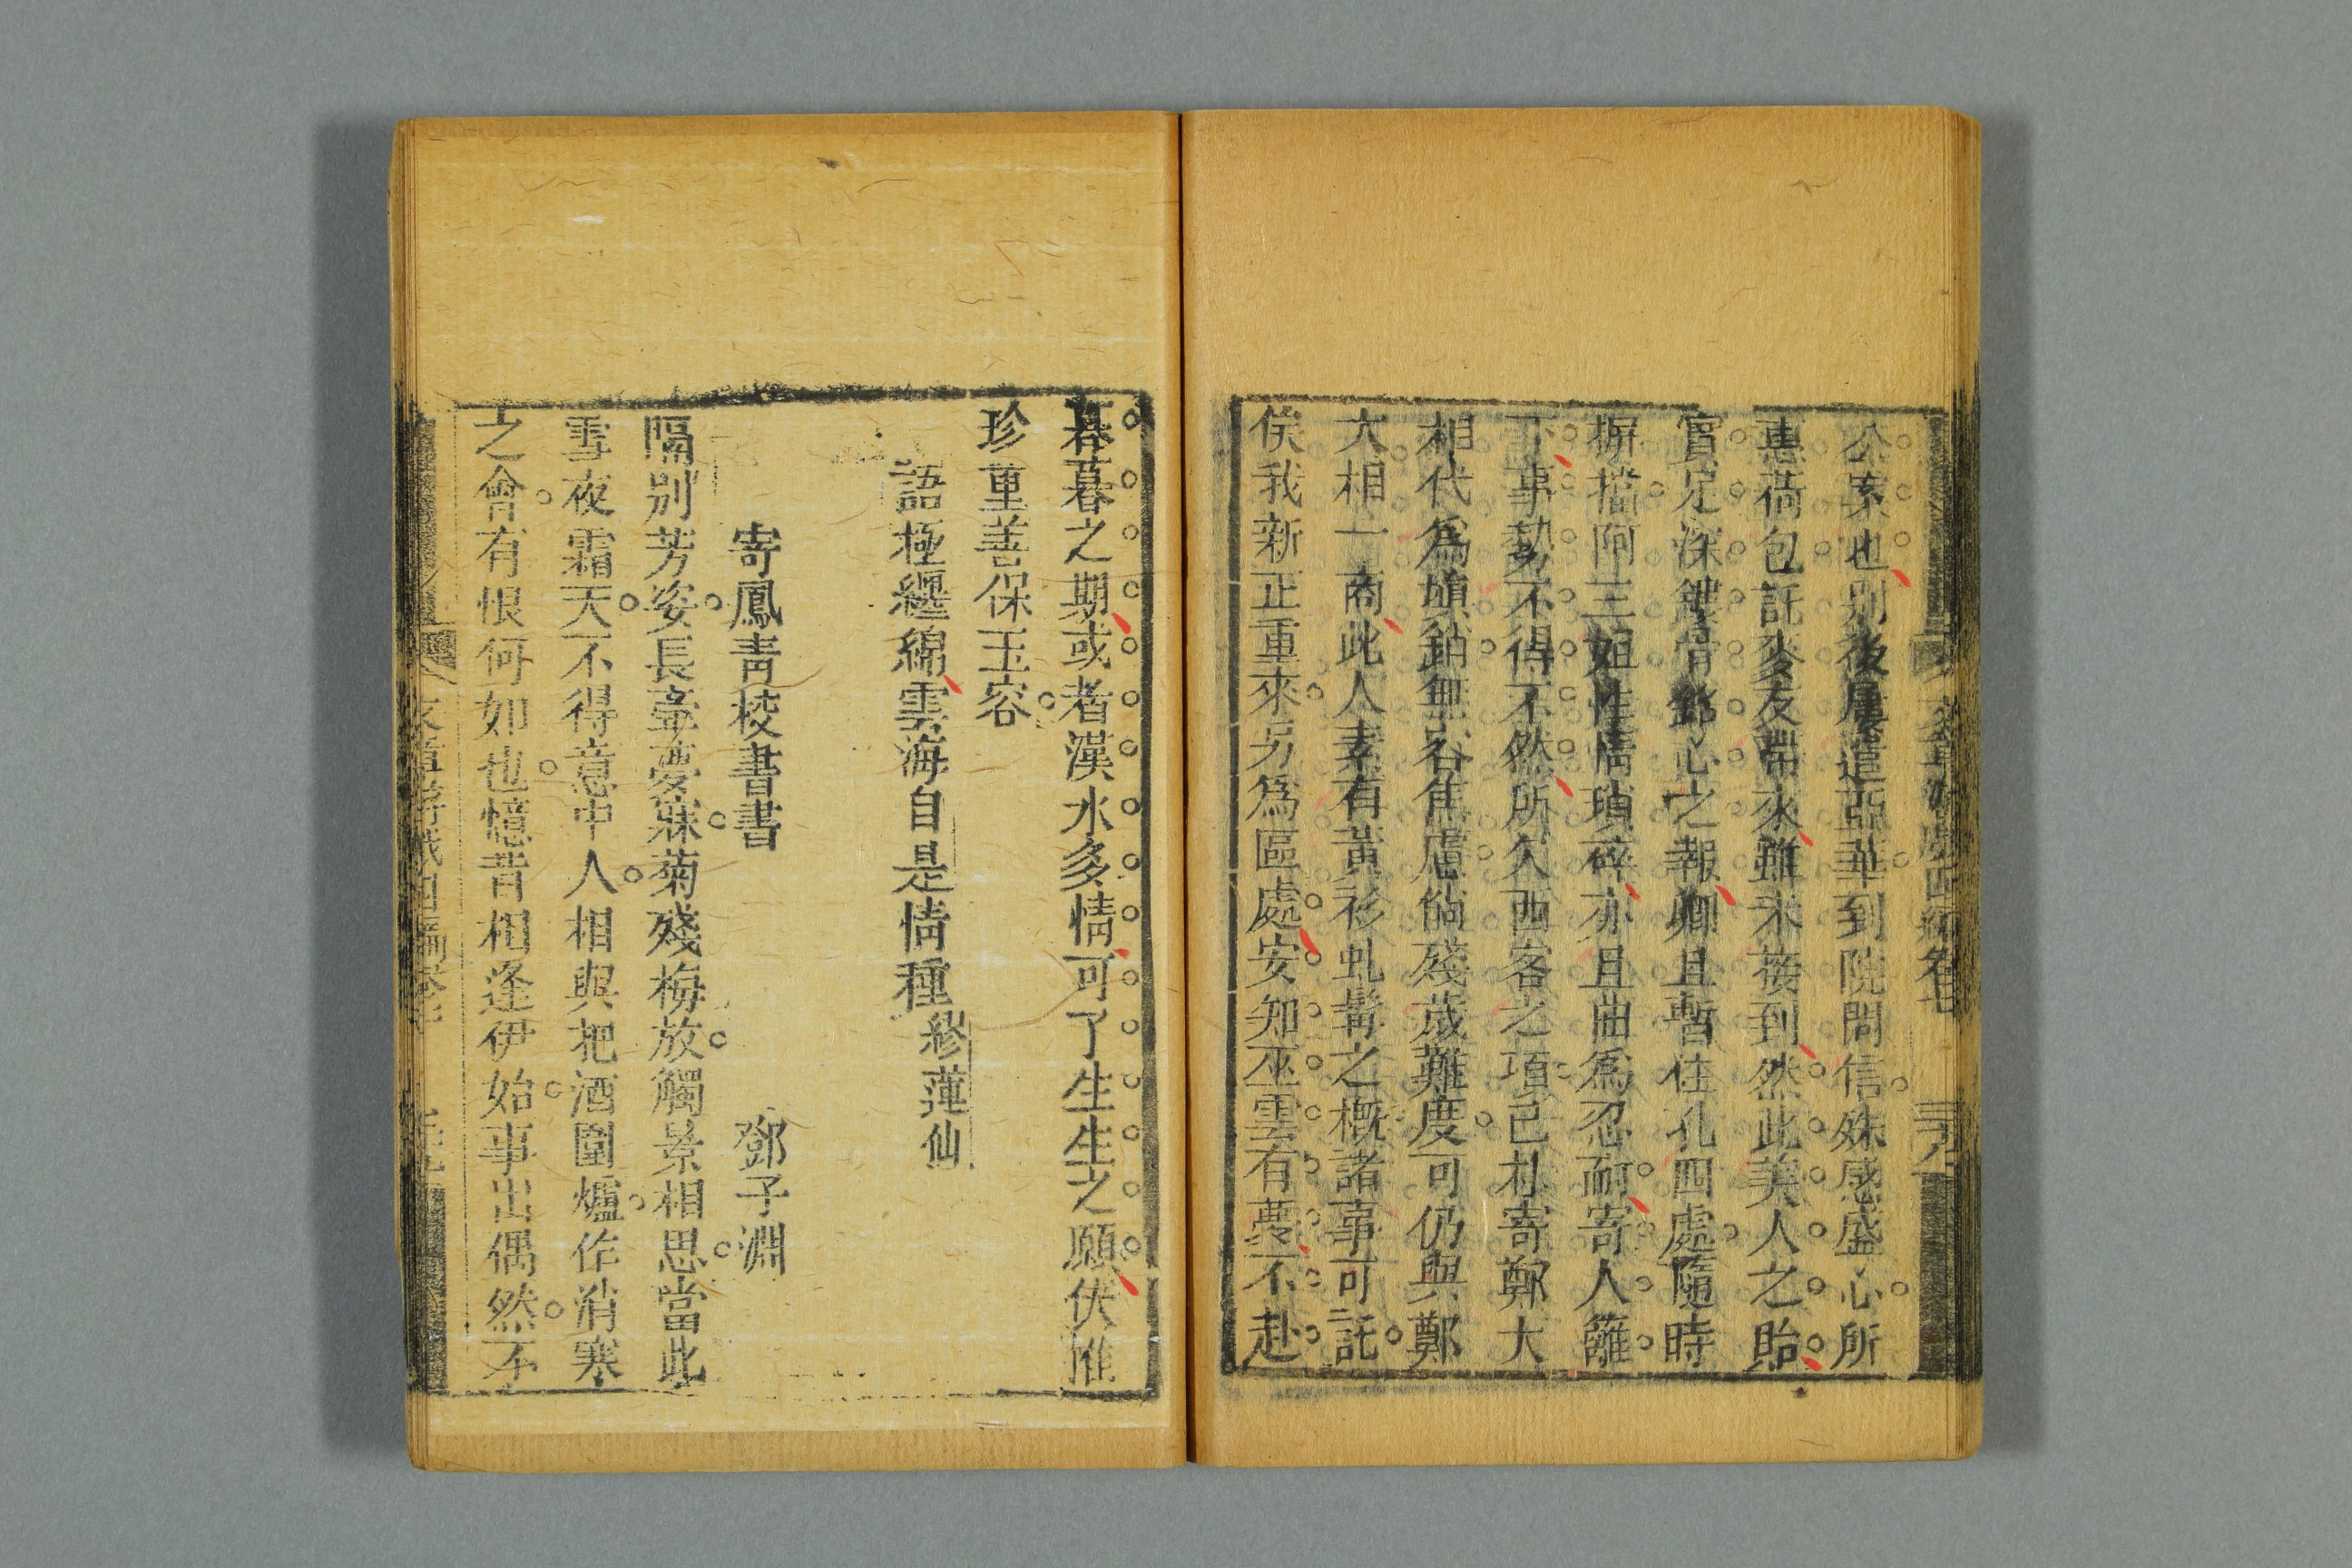 公累也別後屢遣亞華到院問信殊感盛心所
惠荷包託麥友帶來雖未接到然此美人之貽
實足深鏤骨銘心之報卿且暫住孔四處隨時
摒擋阿三姐性情瑣碎亦且曲爲忍耐寄人籬
下事勢不得不然所欠西客之項已札寄鄭大
相代爲塡銷無容焦慮倘殘歲難度可仍與鄭
大相一商此人素有黃衫虬髯之概諸事可託
俟我新正重來另爲區處安知巫雲有夢不赴
暮暮之期或者漢水多情可了生生之願伏惟
珍重善保玉容
語極纏綿雲海自是情種繆蓮仙
寄鳳靑校書書 鄧子淵
隔別芳姿長牽夢寐菊殘梅放觸景相思當此
雪夜霜天不得意中人相與把酒圍爐作消寒
之會有恨何如也憶昔相逢伊始事出偶然不